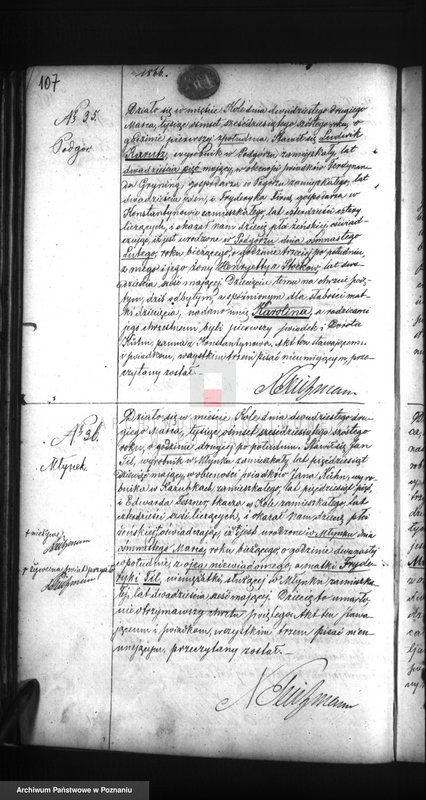 107
1866.
№ 25.
Podgór
Działo się w mieście Kole dnia dwudziestego drugiego
Marca, tysiąc ośmset sześćdziesiątego szóstego roku, o
godzinie pierwszej z południa. Stawił się Ludwik
wyrobnik w Podgórzu zamieszkały, lat
dwadzieścia pięć mający, w obecności świadków Ferdynan-
da gospodarza w Podgórzu zamieszkałego, lat
dwadzieścia i Fryderyka gospodarza w
Konstantynowie zamieszkałego, lat czterdzieści cztery
liczących, i okazał nam dziecię płci żeńskiej, oświad-
czając, iż jest urodzone w Podgórzu dnia ósmnastego
Lutego, roku bieżącego, o godzinie trzeciej po południu,
z niego i jego żony Henryetty z lat dwa-
dzieścia mającej. Dziecięciu temu na chrzcie świę-
tym, dziś odbytym, a opóźnionym dla słabości mat-
ki dziecięcia, nadano imię Karolina, a rodzicami
jego chrzestnemi byli pierwszy świadek i Dorota
Kühn, panna z Konstantynowa. Akt ten stawającemu
i świadkom, wszystkim trzem pisać nieumiejącym, prze-
czytany został.
№ 26.
Młynek
Działo się w mieście Kole, dnia dwudziestego dru-
giego Marca, tysiąc ośmset sześćdziesiątego szóstego
roku, o godzinie drugiej po południu. Stawił się Jan
wyrobnik w Młynku zamieszkały, lat pięćdziesiąt
mający, w obecności świadków Jana Kühn, wyro-
bnika w zamieszkałego, lat pięćdziesiąt
i Edwarda tkacza w Kole zamieszkałego, lat
czterdzieści liczących, i okazał nam dziecię płci
żeńskiej, oświadczając, iż jest urodzone w Młynku dnia
ósmnastego Marca, roku bieżącego, o godzinie dwunastej
w południe, z ojca niewiadomego, a matki Fryde-
ryki niezamężnej, służącej w Młynku zamieszka-
łej, lat dwadzieścia mającej. Dziecię to umarło
nie otrzymawszy chrztu świętego. Akt ten stawa-
jącemu i świadkom, wszystkim trzem pisać nieu-
miejącym, przeczytany został.
Archiwum Państwowe w Poznaniu